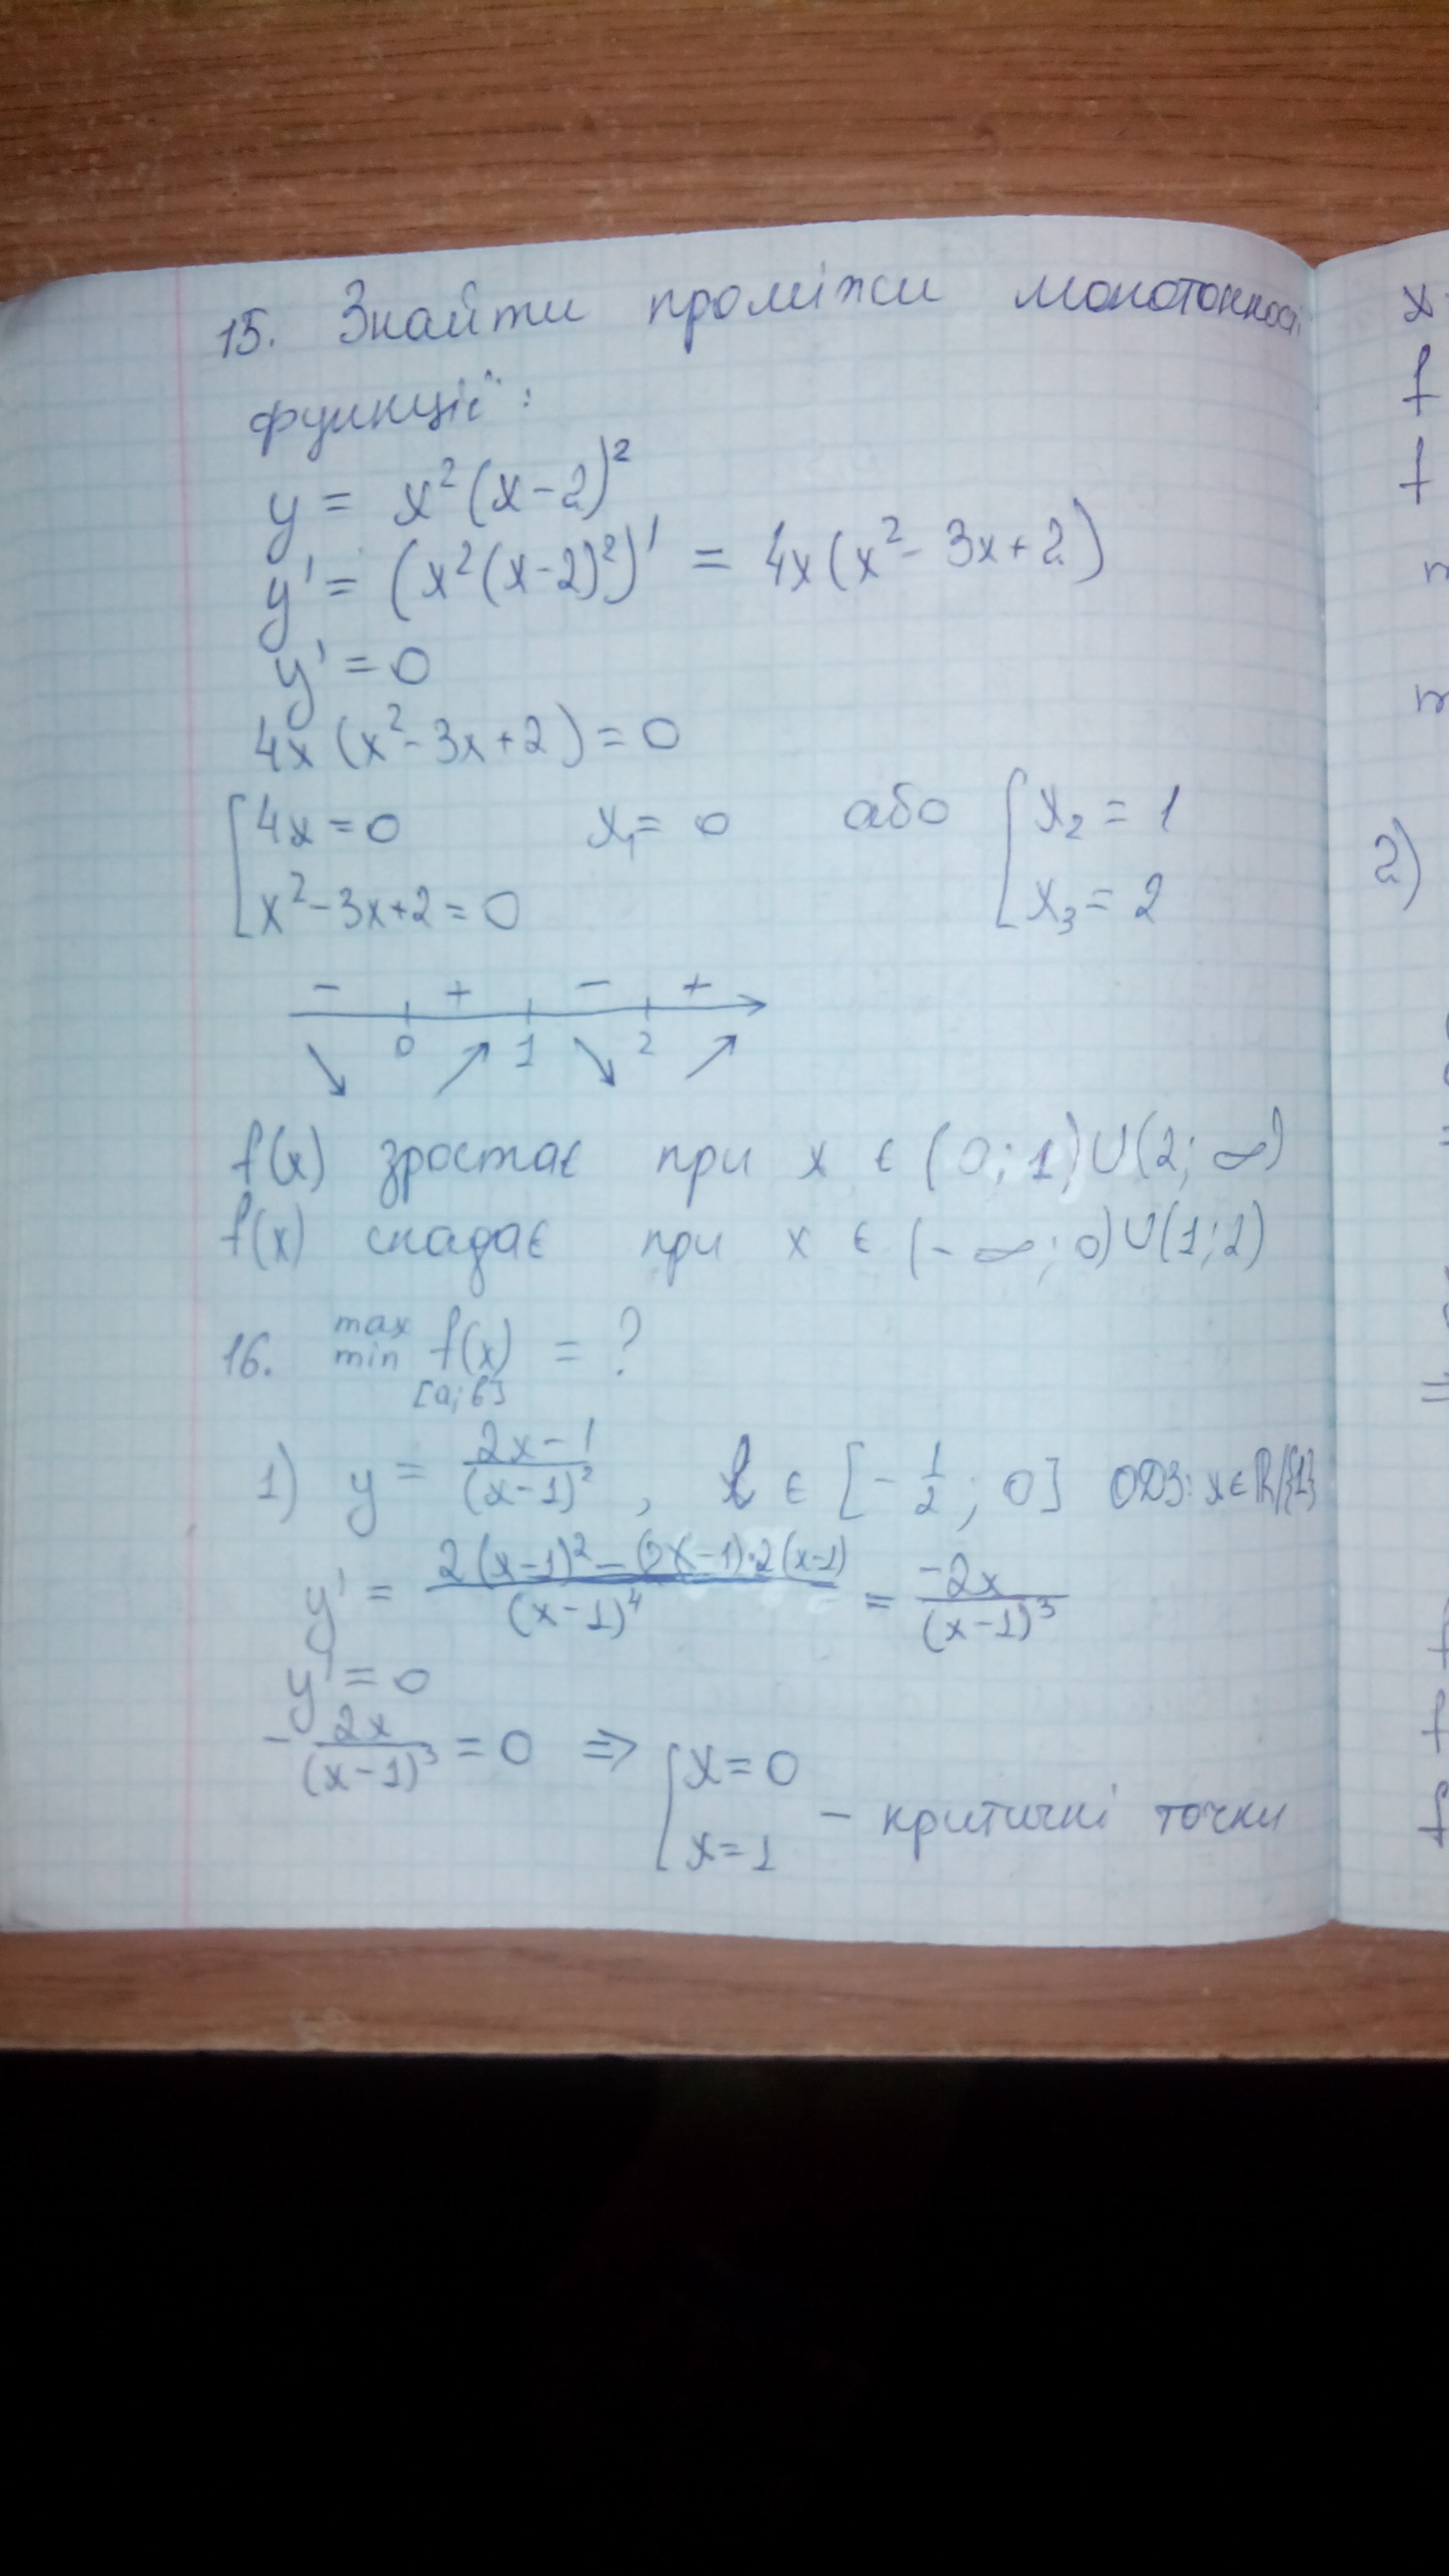 15. Знайти проміжки монотонності
функції:
y = x²(x-2)²
y' = (x²(x-2)²)' = 4x(x²- 3x+2)
y' = 0
4x (x²- 3x+2) = 0
[4x = 0 x₁= 0 або [x₂ = 1
x²-3x+2 = 0 x₃ = 2
- + - +
0 1 2
f(x) зростає при x є (0; 1) U (2; ∞)
f(x) спадає при x є (-∞; 0) U (1; 2)
16. max min f(x) = ?
[a; b]
1) y = (2x-1)/(x-1)², є [-1/2; 0] ОДЗ: x є R/{1}
y' = (2(x-1)² - (2x-1)·2(x-1))/(x-1)⁴ = -2x/(x-1)³
y' = 0
- 2x/(x-1)³ = 0 ⇒ [x = 0
x = 1 - критичні точки
x
f
f
2)
=
f
f
f